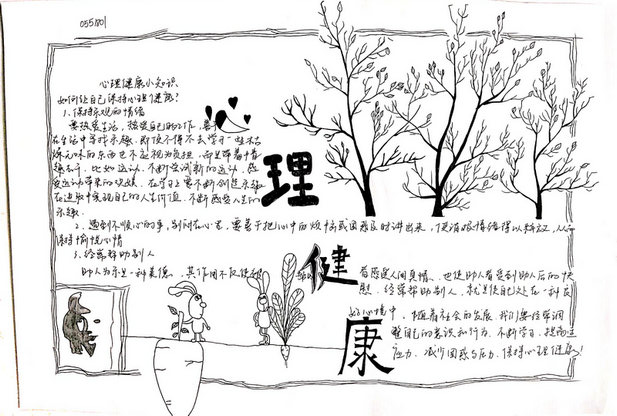 055801
心理健康小知识
如何让自己保持心理健康？
1、保持乐观的情绪
要热爱生活，热爱自己的工作，善于
在生活中寻找乐趣，即使不得不去学习一些枯
燥无味的东西也不应视为负担，而是带着情
趣去干，比如运动，不断尝试新的运动，感
受运动带来的欢娱，在学习上要不断创造乐趣
在进取中实现自己的人生价值，不断感受人生的
乐趣.
2、遇到不顺心的事，别闷在心里，要善于把心中的烦恼或困惑及时讲出来，使消极情绪得以释放，从而
保持愉悦心情
3、经常帮助别人
助人为乐是一种美德，其作用不仅使
着感受人间真情，也使助人者受到助人后的快
慰，经常帮助别人，就是使自己处在一种良
好心境中，随着社会的发展，我们要经常调
整自己的意识和行为，不断学习，提高适
应力，减少困惑与压力，保持心理健康！
心
理
健
康